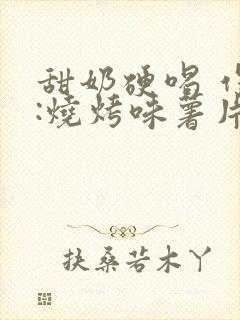 甜奶硬唱
:燒烤味薯片
扶桑若木丫